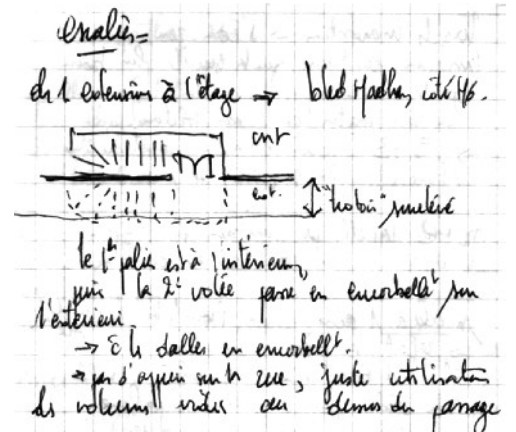 escalier =
ds 1 extension à l'étage → bled Hadhar, côté H6.
int
ext.
"trottoir" surélevé
le 1er palier est à l'intérieur,
puis la 2è volée passe en encorbellt sur
l'extérieur.
→ des dalles en encorbellt.
→ pas d'appui sur la rue, juste utilisation
ds volumes vides au dessus du passage